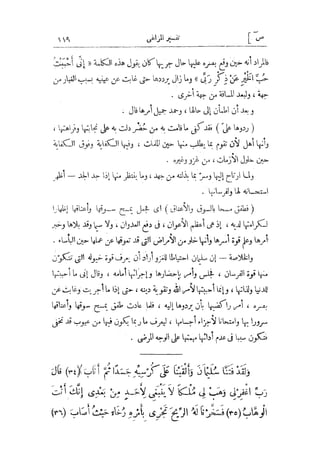 ص ] تفسير المراغى ١١٩
فالمراد أنه حين وقع بصره عليها حال جريها كان يقول هذه الكلمة « إِنِّى أَحْبَبْتُ
حُبَّ الْخَيْرِ عَنْ ذِكْرِ رَبِّى » وما زال يرددها حتى غابت عن عينيه بسبب الغبار من
جهة ، ولبعد المسافة من جهة أخرى .
وبعد أن اطمأن إلى حالها ، وحمد جميل أمرها قال .
( ردوها علىّ ) فقد كفى ما قامت به من حُضْر دلت به على نجابتها وفراهتها ،
وأنها أهل لأن تقوم بما يطلب منها حين الملمات ، وفيها الكفاية وفوق الكفاية
حين حلول الأزمات ، من غزو وغيره .
ولما ارتاح إليها وسرّ بما بذلته من جهد ، وما ينتظر منها إذا جد الجد — أظهر
استحسانه لها ولفرسانها .
( فطفق مسحا بالسوق والأعناق ) أى فجعل يمسح سوقها وأعناقها إظهارا
لكرامتها لديه ، إذ هى أعظم الأعوان ، فى دفع العدوان ، ولا سيما وقد بلاها وخبر
أمرها وعلم قوة أسرها وأنها خلو من الأمراض التى قد تعوقها عن عملها حين البأساء .
والخلاصة — إن سليمان احتياطا للغزو أراد أن يعرف قوة خيوله التى تتكون
منها قوة الفرسان ، فجلس وأمر بإحضارها وإجرائها أمامه ، وقال إنى ما أحببتها
للدنيا ولذاتها ، وإنما أحببتها لأمر الله وتقوية دينه ، حتى إذا ما أجريت وغابت عن
بصره ، أمر راكضيها بأن يردوها إليه ، فلما عادت طفق يمسح سوقها وأعناقها
سرورا بها وامتحانا لأجزاء أجسامها ، ليعرف ما ربما يكون فيها من عيوب قد تخفى
فتكون سببا فى عدم أدائها مهمتها على الوجه المرضى .
وَلَقَدْ فَتَنَّا سُلَيْمَانَ وَأَلْقَيْنَا عَلَى كُرْسِيِّهِ جَسَدًا ثُمَّ أَنَابَ (٣٤) قَالَ
رَبِّ اغْفِرْلِى وَهَبْ لِى مُلْكًا لَا يَنْبَغِى لِأَحَدٍ مِنْ بَعْدِى إِنَّكَ أَنْتَ
الْوَهَّابُ (٣٥) فَسَخَّرْنَا لَهُ الرِّيحَ تَجْرِى بِأَمْرِهِ رُخَاءً حَيْثُ أَصَابَ (٣٦)